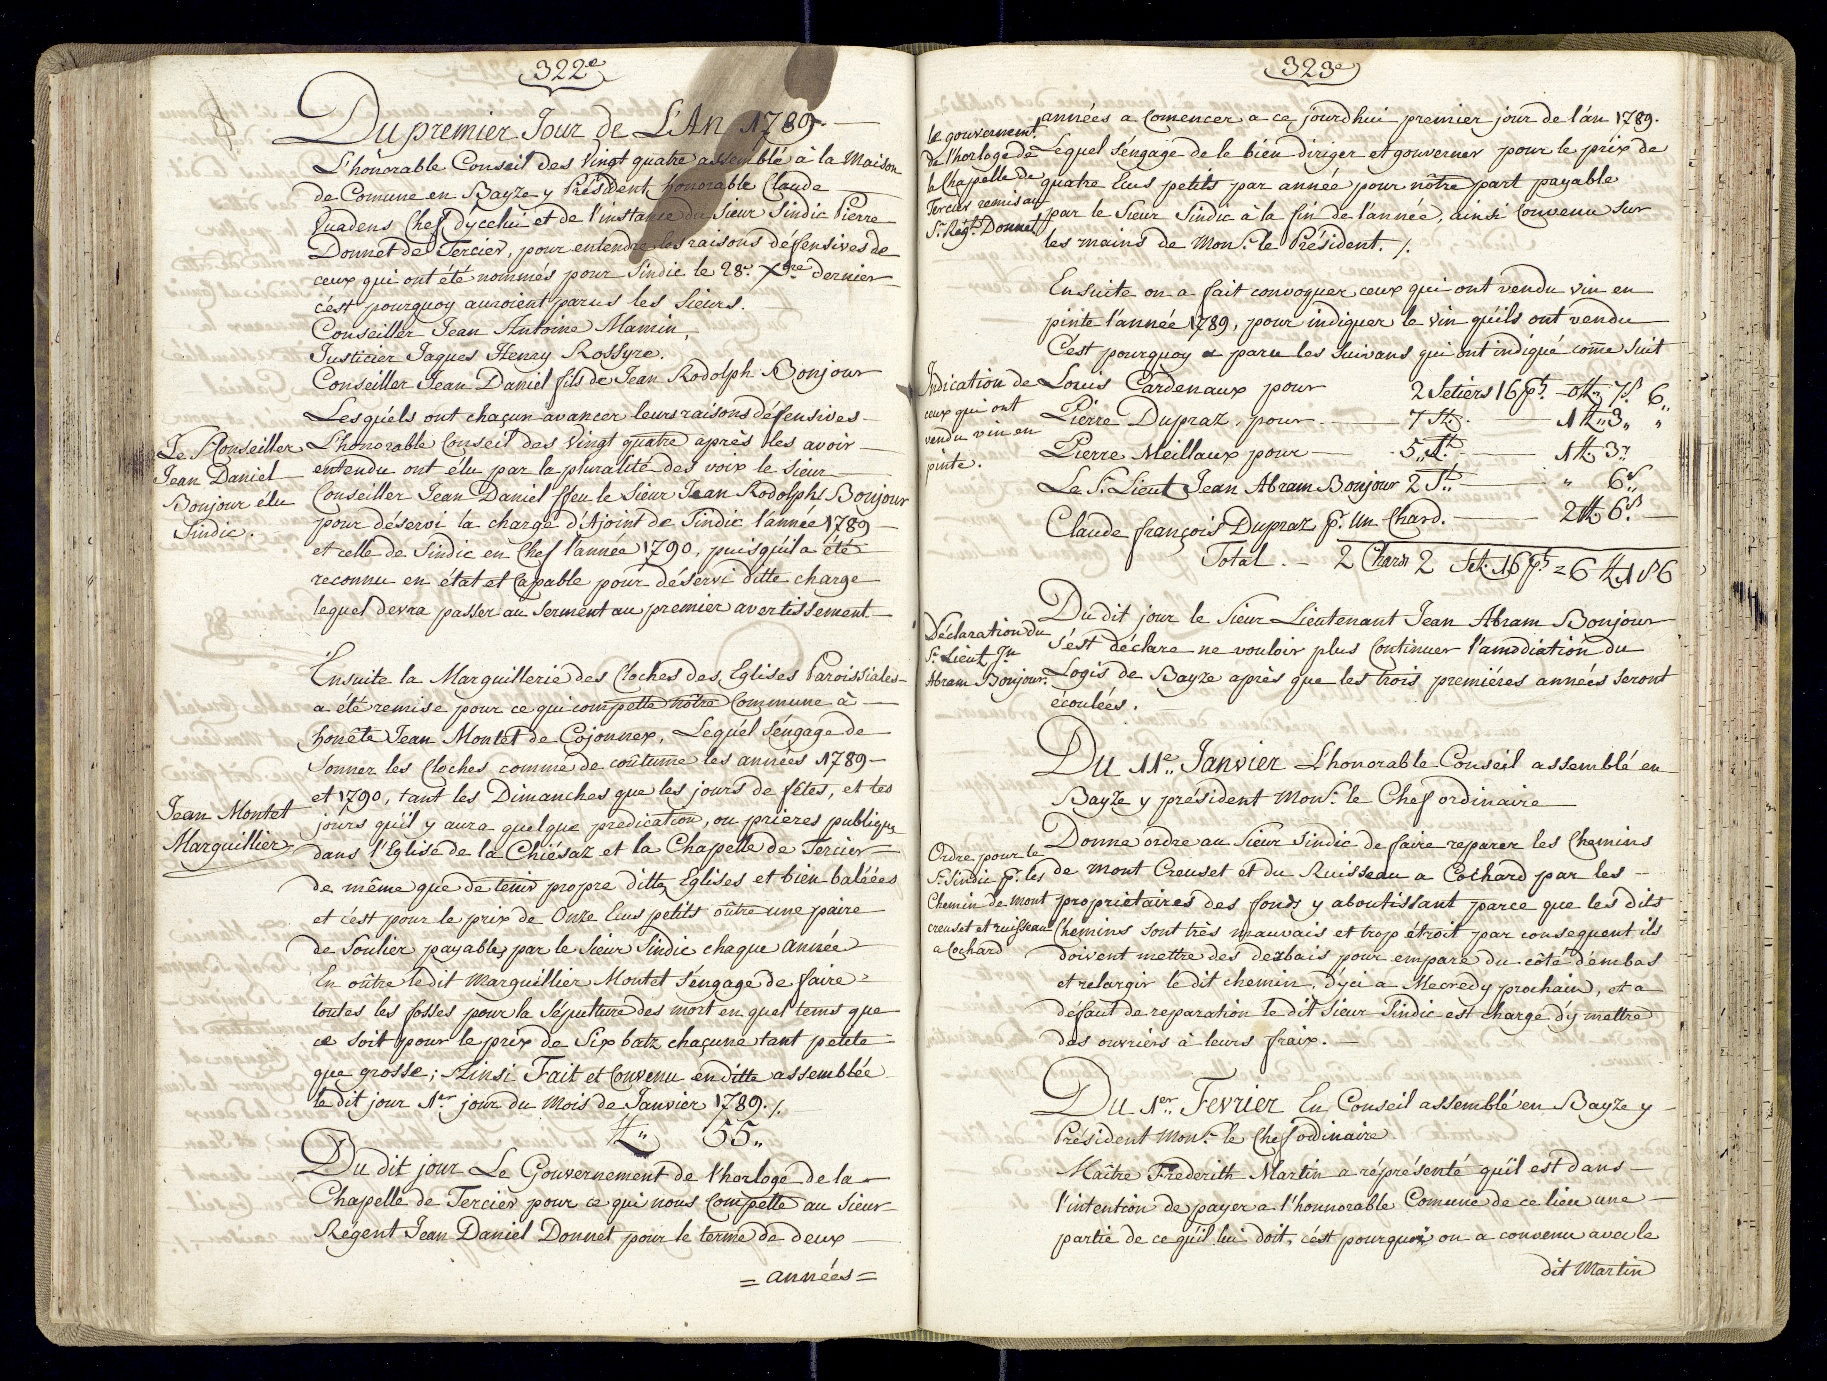 322e
Du premier Jour de L'An 1789.
L'honorable Conseil des Vingt quatre assemblé à la Maison
de Comune en Bayze y Président honorable Claude
Quadens Chef d'ycelui et de l'instance du Sieur Sindic Pierre
Donnet de Tercier, pour entendre les raisons défensives de
ceux qui ont été nommés pour Sindic le 28e. Xbre dernier
c'est pourquoy auroient parus les Sieurs.
Conseiller Jean Antoine Mamin,
Justicier Jaques Henry Rossyre.
Conseiller Jean Daniel fils de Jean Rodolph Bonjour
Lesquels ont chaçun avancer leurs raisons défensives
L'honorable Conseil des Vingt quatre aprés les avoir
entendu ont élu par la pluralité des voix le Sieur
Conseiller Jean Daniel ffeu le Sieur Jean Rodolph Bonjour
pour déservi la charge d'Ajoint de Sindic l'année 1789
et celle de Sindic en Chef l'année 1790, puisqu'il a été
reconnu en état et Capable pour déservi ditte charge
lequel devra passer au Serment au premier avertissement.
Le Sr. Conseiller
Jean Daniel
Bonjour élu
Sindic.
Ensuite la Marguillerie des Cloches des Eglises Paroissiales
a été remise pour ce qui compette nôtre Commune à
honête Jean Montet de Cojonnex, Lequel s'engage de
sonner les Cloches comme de coûtume les années 1789
et 1790, tant les Dimanches que les jours de fêtes, et les
jours qu'il y aura quelque predication, ou prieres publiques
dans l'Eglise de la Chiésaz et la Chapelle de Tercier
de même que de tenir propre dittes Eglises et bien baléées
et c'est pour le prix de Onze Ecus petits oûtre une paire
de Soulier payables par le Sieur Sindic chaque année
En oûtre le dit Marguillier Montet s'engage de faire
toutes les fosses pour la Sépulture des mort en quel tems que
ce soit pour le prix de Six batz chaçune tant petite
que grosse; Ainsi Fait et Convenu en ditte assemblée
le dit jour 1er. jour du Mois de Janvier 1789./.
Jean Montet
Marguillier
55
Du dit jour Le Gouvernement de l'horloge de la
Chapelle de Tercier pour ce qui nous Compette au Sieur
Régent Jean Daniel Donnet pour le terme de deux
= années =
323e
années a Comencer a ce jourd'hui premier jour de l'an 1789.
Lequel s'engage de le bien diriger et gouverner pour le prix de
quatre Ecus petits par année pour nôtre part payable
par le Sieur Sindic à la fin de l'année, ainsi Convenu sur
les mains de Mon.r le Président. /.
le gouvernemt
de l'horloge de
la Chapelle de
Tercier remis au
Sr. Régt. Donnet
Ensuite on a fait convoquer ceux qui ont vendu vin en
pinte l'année 1789, pour indiquer le vin qu'ils ont vendu
C'est pourquoy a paru les Suivans qui ont indiqué come Suit
Indication de
ceux qui ont
vendu vin en
pinte.
Louis Cardenaux pour 2 Setiers 16 pts. 0 ℔ 7 s 6
Pierre Dupraz, pour 7 St. 1 ℔ 3
Pierre Meillaux pour 5 St. 1 ℔ 3
Le Sr. Lieut Jean Abram Bonjour 2 St. " 6 s
Claude françois Dupraz p. Un Chard. 2 ℔ 6 s
Total. 2 Chards 2 St. 16 pts = 6 ℔ 1 s 6
Du dit jour le Sieur Lieutenant Jean Abram Bonjour
s'est déclare ne vouloir plus Continuer l'amodiation du
Logis de Bayze aprés que les trois premiéres années seront
écoulées.
Déclaration du
Sr. Lieut Jn
Abram Bonjour.
Du 11e. Janvier L'honorable Conseil assemblé en
Bayze y président Monr. le Chef ordinaire
Donne ordre au Sieur Sindic de faire reparer les Chemins
de Mont Creuset et du Ruisseau a Cochard par les
propriétaires des fonds y aboutissant parce que les dits
Chemins sont très mauvais et trop étroit par consequent ils
doivent mettre des derbais pour empare du côté d'embas
et relargir le dit chemin, d'yci a Mecredy prochain, et a
défaut de reparation le dit Sieur Sindic est charge d'y mettre
des ouvriers à leurs fraix.
Ordre pour le
Sr. Sindic pr. les
Chemin de mont
creuset et ruisseau
a Cochard
Du 1er. Fevrier En Conseil assemblé en Bayze y
Président Monr. le Chef ordinaire
Maître Frederith Martin a réprésenté qu'il est dans
l'intention de payer a l'honnorable Comune de ce lieu une
partie de ce qu'il lui doit, c'est pourquoi on a convenu avec le
dit Martin